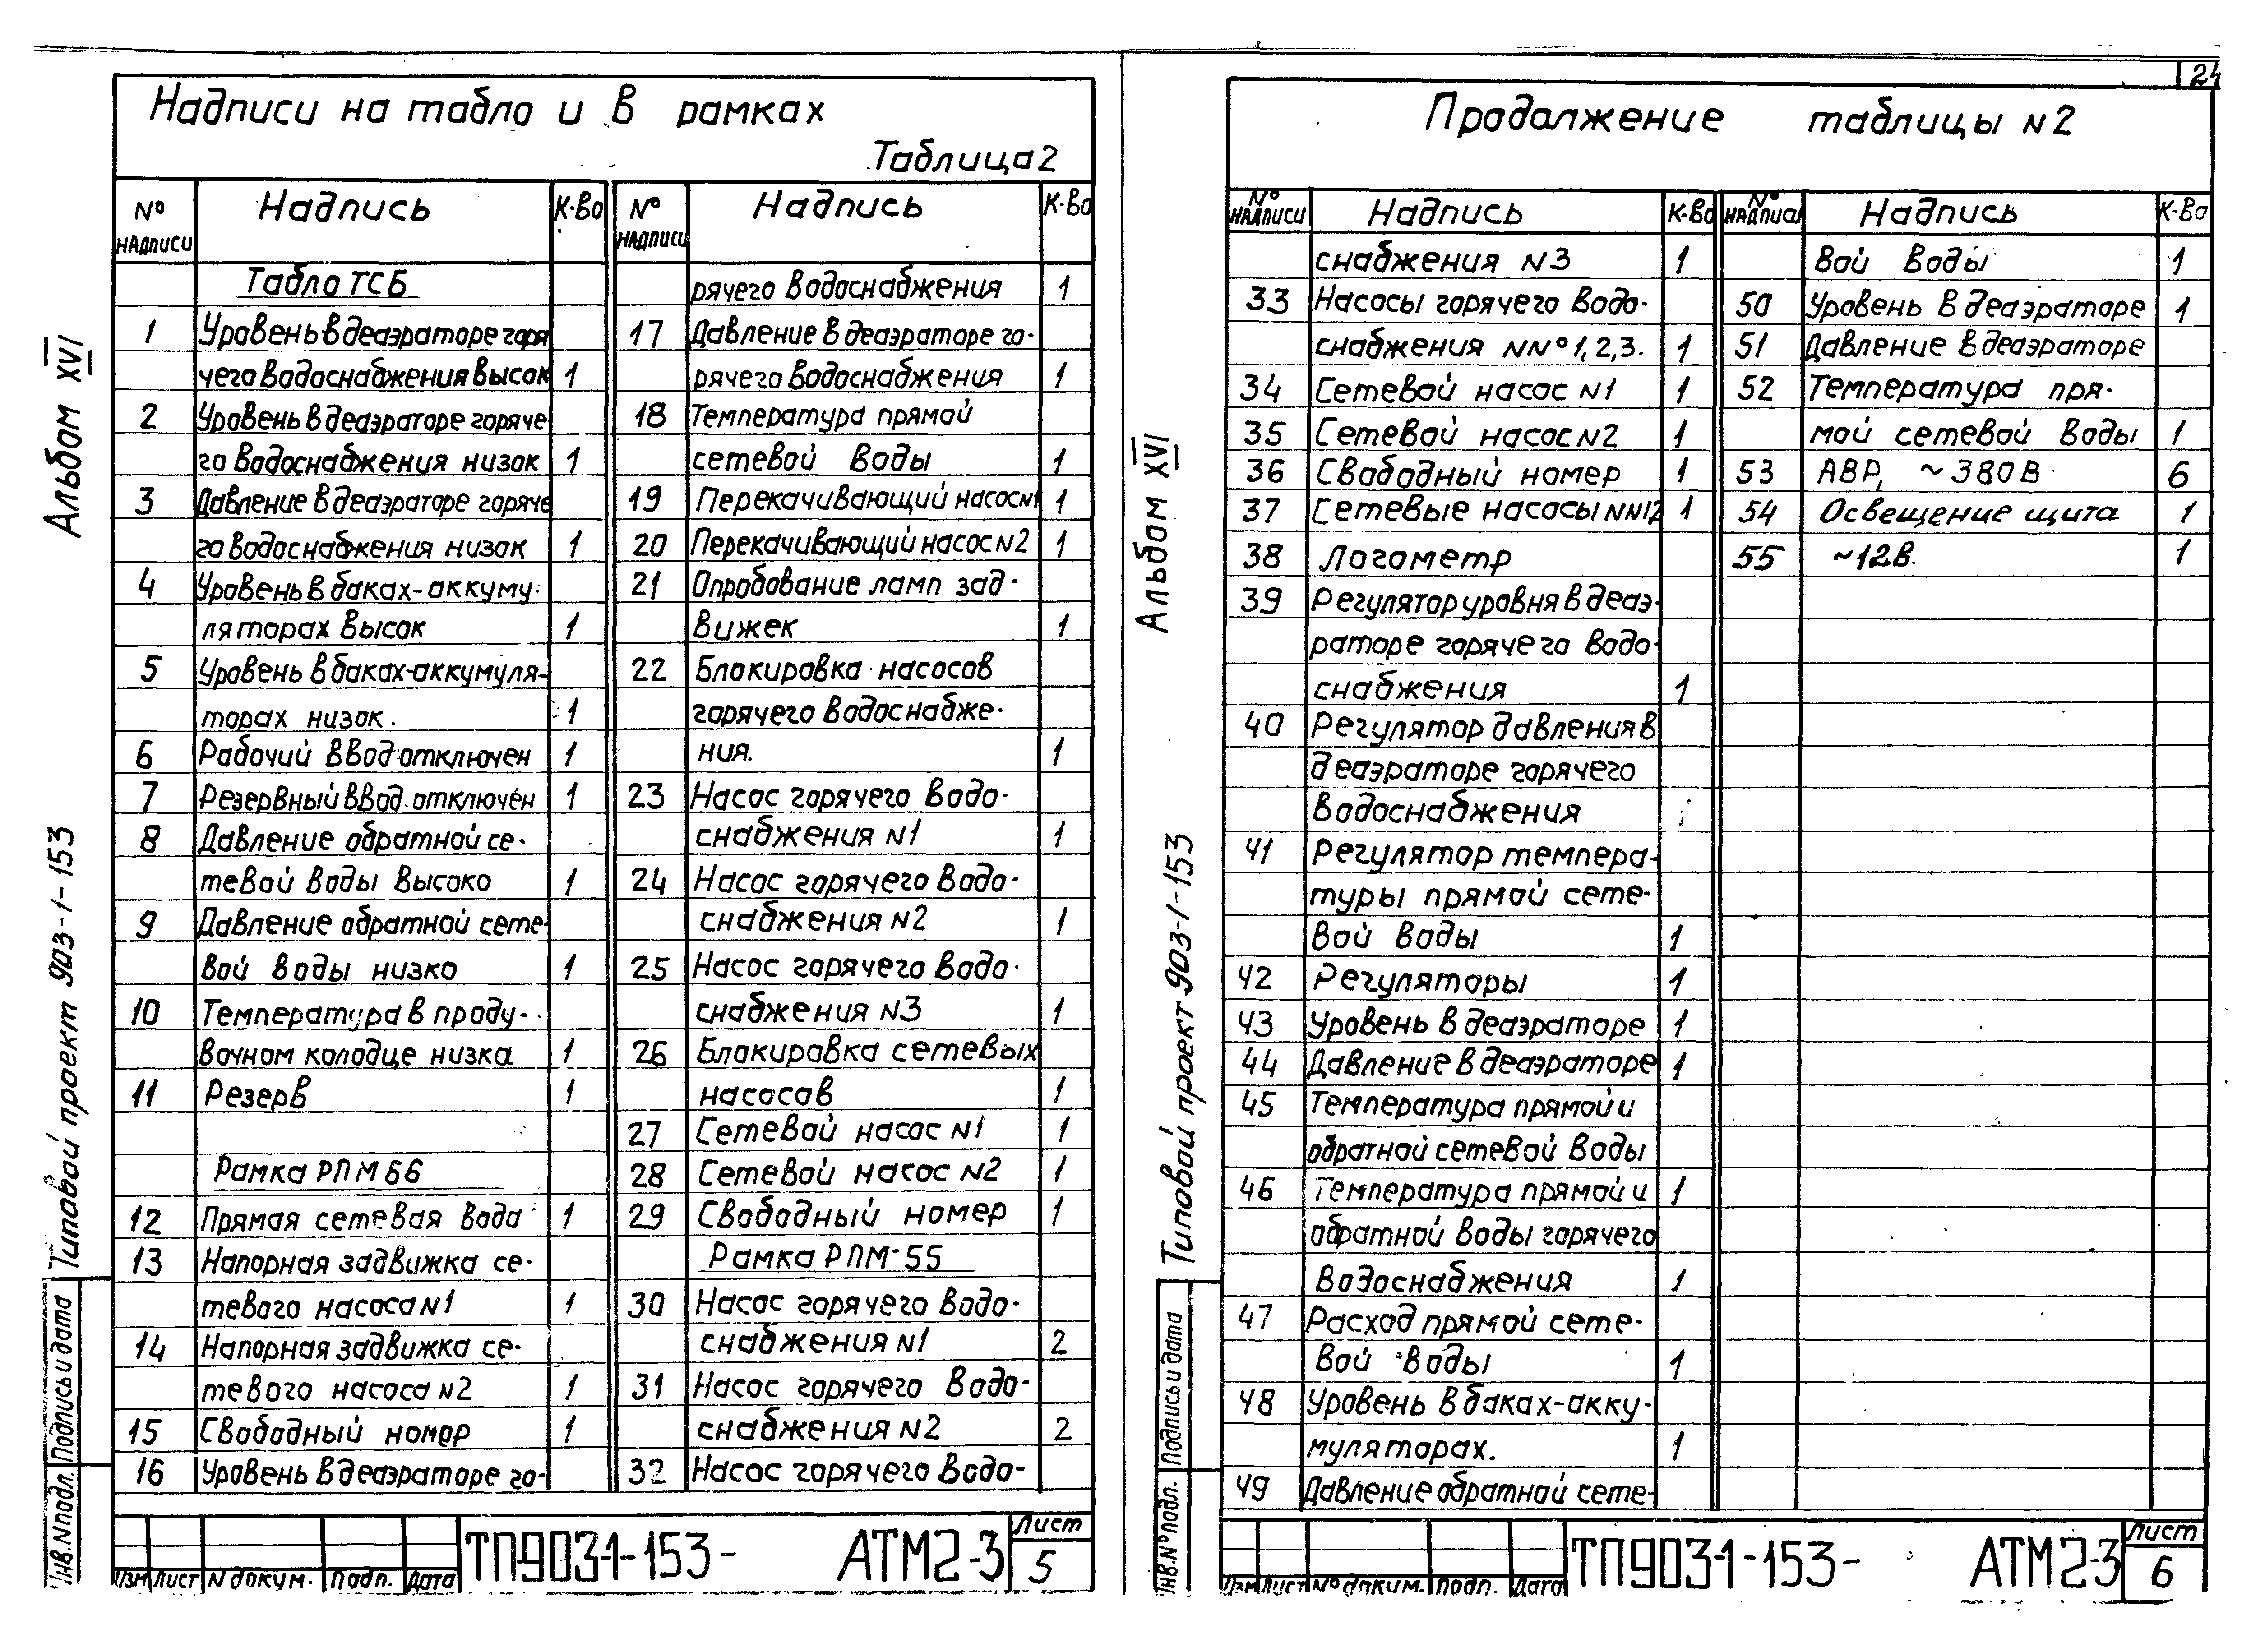 24
Надписи на табло и в рамках
Таблица 2
№ надписи Надпись К-во
Табло ТСБ
1 Уровень в деаэраторе горя
чего водоснабжения высок 1
2 Уровень в деаэраторе горяче
го водоснабжения низок 1
3 Давление в деаэраторе горяче
го водоснабжения низок 1
4 Уровень в баках-аккуму-
ляторах высок 1
5 Уровень в баках-аккумуля-
торах низок. 1
6 Рабочий ввод отключен 1
7 Резервный ввод отключен 1
8 Давление обратной се-
тевой воды высоко 1
9 Давление обратной сете-
вой воды низко 1
10 Температура в проду-
вочном колодце низка 1
11 Резерв 1
Рамка РПМ 66
12 Прямая сетевая вода 1
13 Напорная задвижка се-
тевого насоса N1 1
14 Напорная задвижка се-
тевого насоса N2 1
15 Свободный номер 1
16 Уровень в деаэраторе го-
№ надписи Надпись К-во
рячего водоснабжения 1
17 Давление в деаэраторе го-
рячего водоснабжения 1
18 Температура прямой
сетевой воды 1
19 Перекачивающий насос N1 1
20 Перекачивающий насос N2 1
21 Опробование ламп зад-
вижек 1
22 Блокировка насосов
горячего водоснабже-
ния. 1
23 Насос горячего водо-
снабжения N1 1
24 Насос горячего водо-
снабжения N2 1
25 Насос горячего водо-
снабжения N3 1
26 Блокировка сетевых
насосов 1
27 Сетевой насос N1 1
28 Сетевой насос N2 1
29 Свободный номер 1
Рамка РПМ-55
30 Насос горячего водо-
снабжения N1 2
31 Насос горячего водо-
снабжения N2 2
32 Насос горячего водо-
Изм Лист N докум. Подп. Дата
ТП903-1-153- АТМ2-3
Лист
5
Альбом XVI
Типовой проект 903-1-153
Подпись и дата
Инв. N подл.
Продолжение таблицы N2
№ надписи Надпись К-во
снабжения N3 1
33 Насосы горячего водо-
снабжения NN° 1,2,3. 1
34 Сетевой насос N1 1
35 Сетевой насос N2 1
36 Свободный номер 1
37 Сетевые насосы NN12 1
38 Логометр
39 Регулятор уровня в деаэ-
раторе горячего водо-
снабжения 1
40 Регулятор давления в
деаэраторе горячего
водоснабжения
41 Регулятор темпера-
туры прямой сете-
вой воды 1
42 Регуляторы 1
43 Уровень в деаэраторе 1
44 Давление в деаэраторе 1
45 Температура прямой и
обратной сетевой воды
46 Температура прямой и 1
обратной воды горячего
водоснабжения 1
47 Расход прямой сете-
вой воды 1
48 Уровень в баках-акку-
муляторах. 1
49 Давление обратной сете-
№ надписи Надпись К-во
вой воды 1
50 Уровень в деаэраторе 1
51 Давление в деаэраторе
52 Температура пря-
мой сетевой воды 1
53 АВР, ~380В 6
54 Освещение щита 1
55 ~12в. 1
Изм Лист № докум. Подп. Дата
ТП903-1-153- АТМ2-3
Лист
6
Альбом XVI
Типовой проект 903-1-153
Подпись и дата
Инв. № подл.